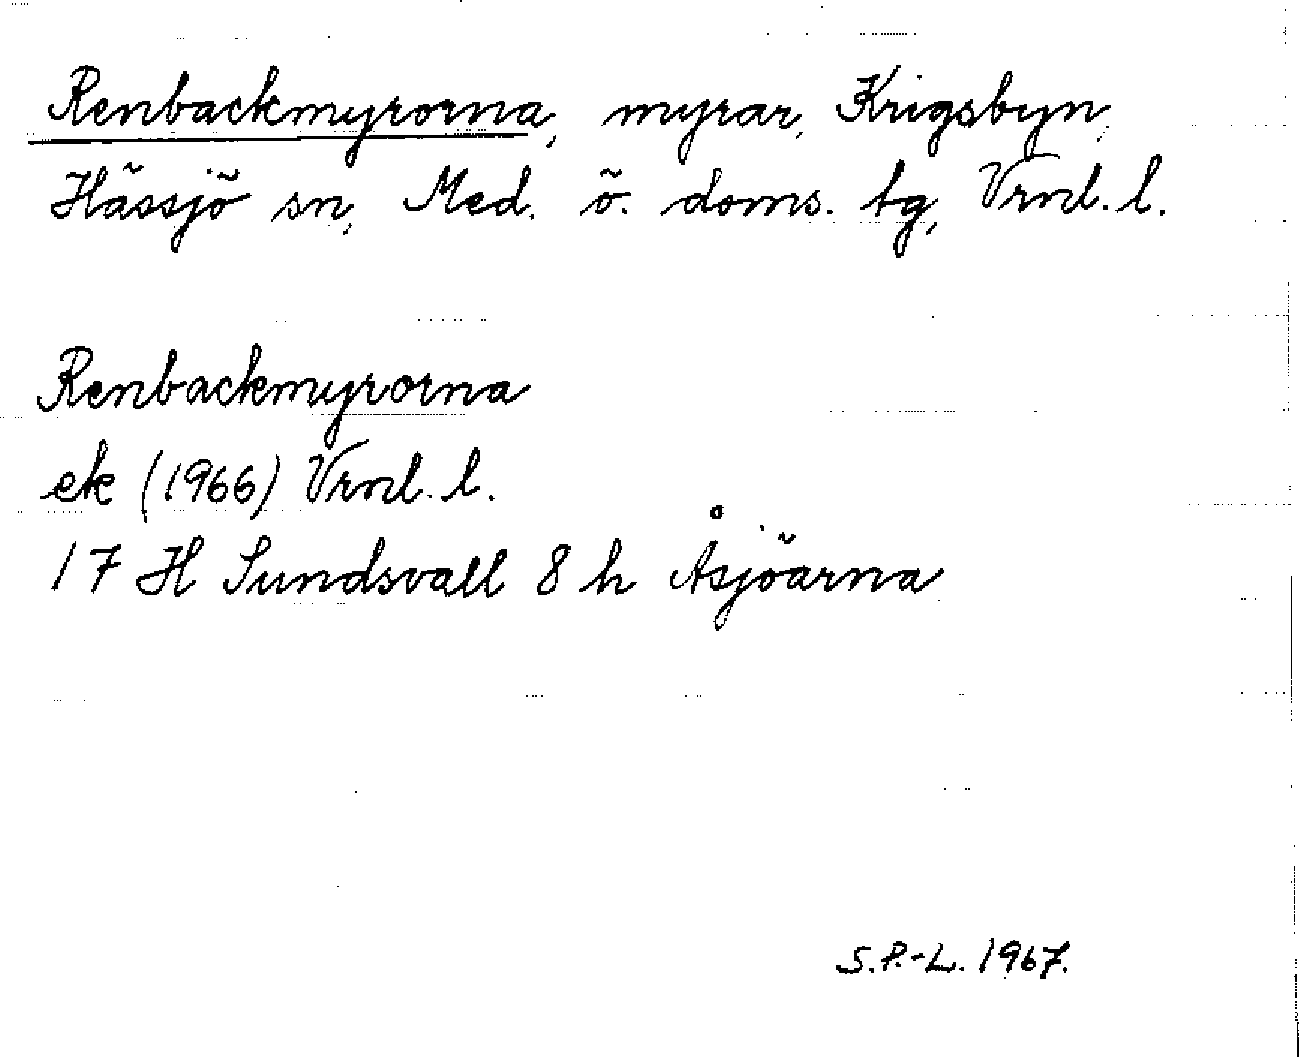 Renbackmyrorna, myrar, Krigsbyn,
Hässjö sn, Med. ö. doms. tg, Vrnl. l.
Renbackmyrorna
ek (1966) Vrnl. l.
17 H Sundsvall 8 h Åsjöarna
S.P.-L. 1967.